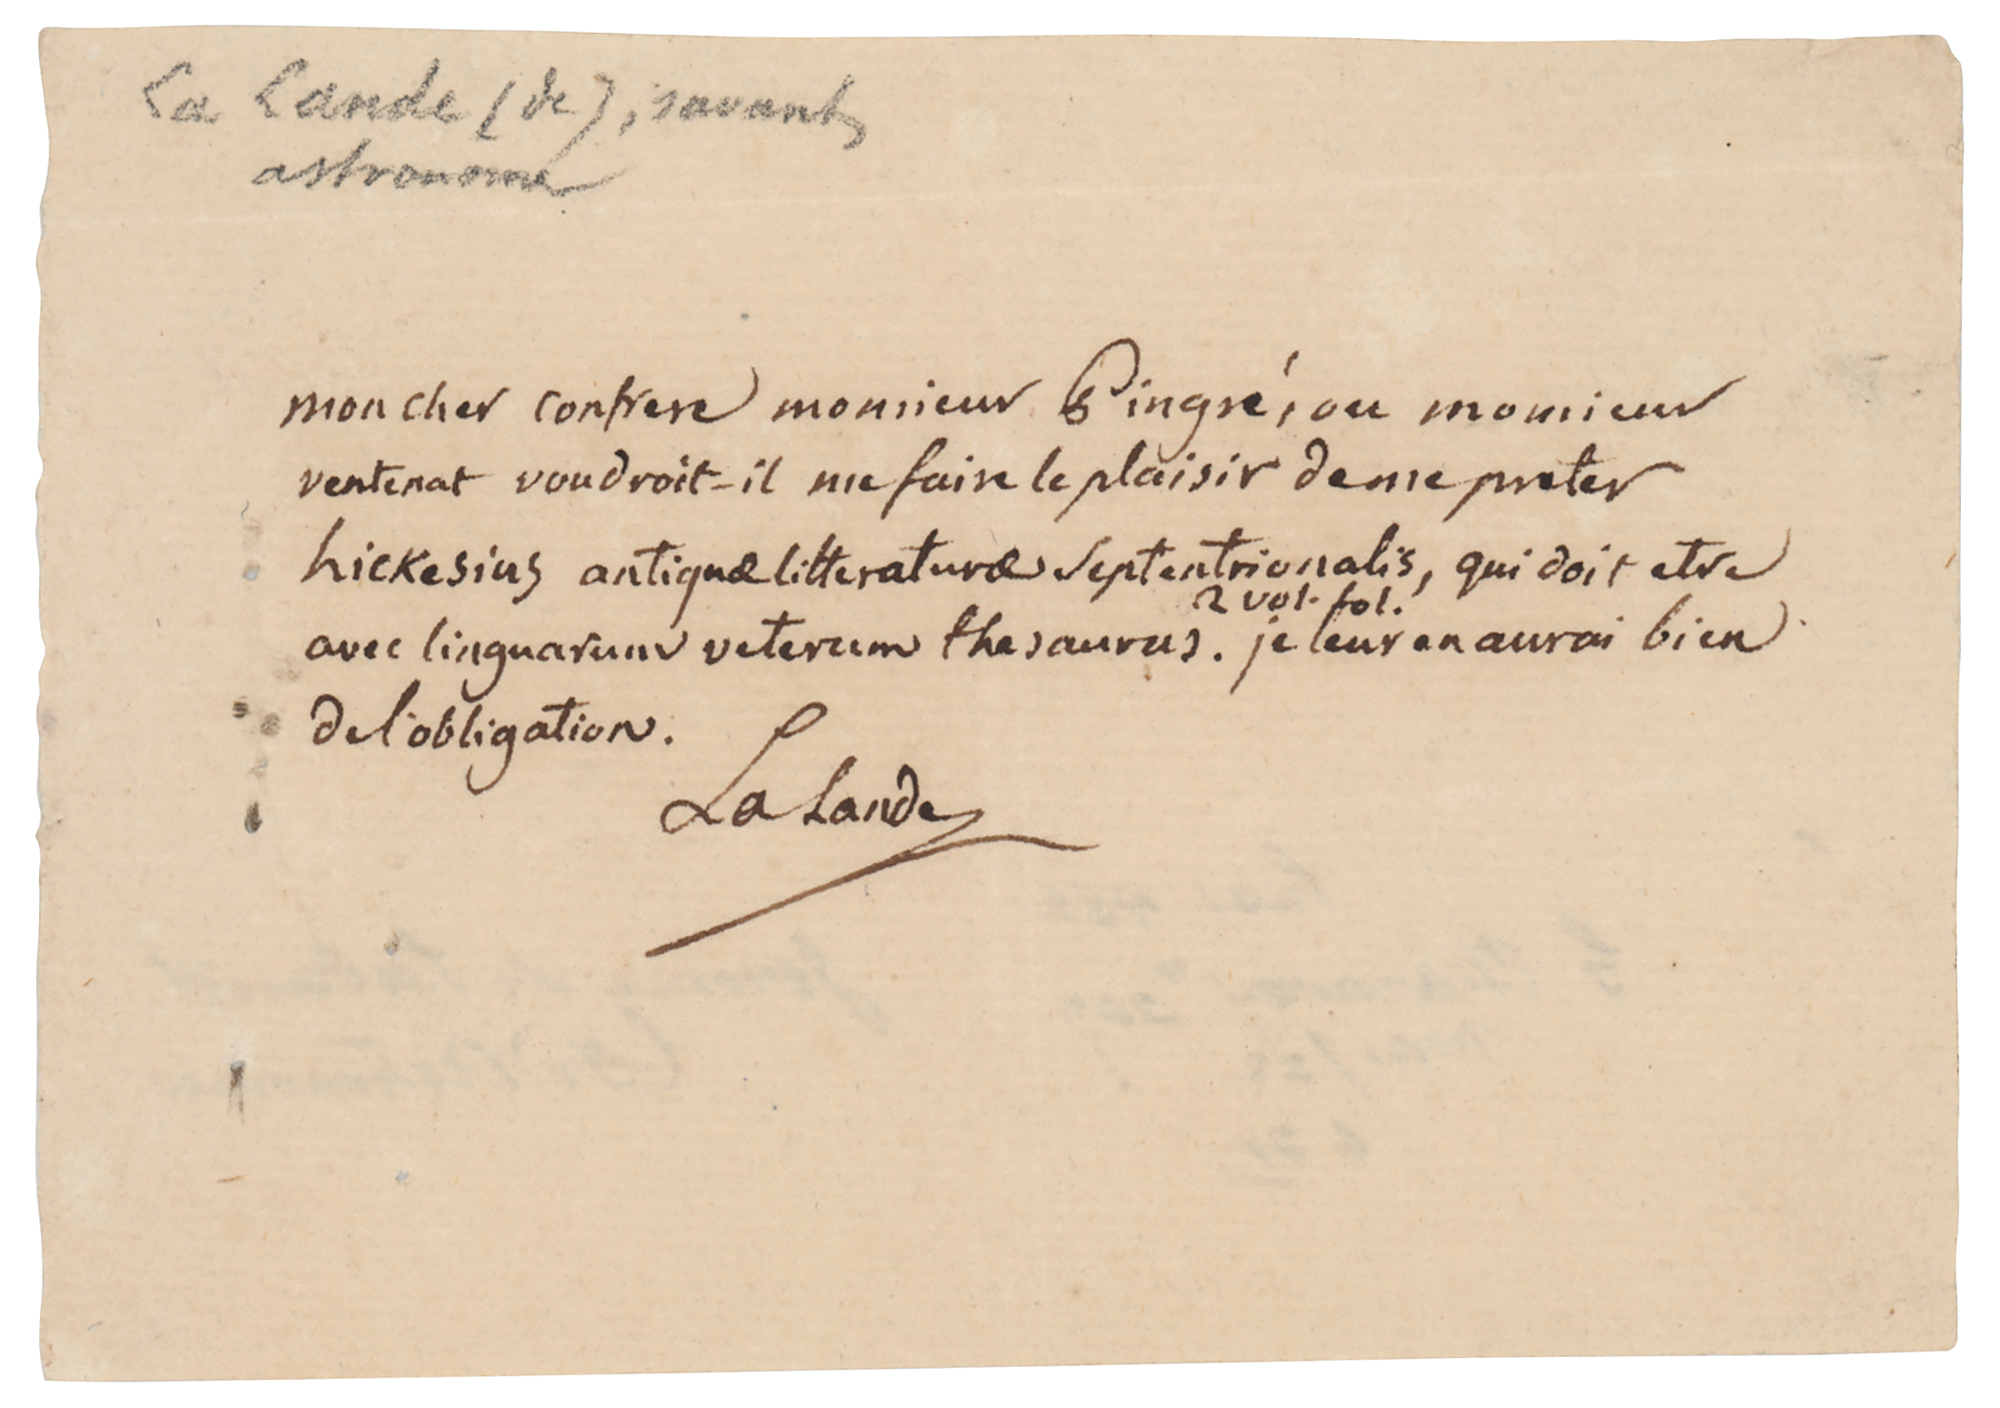 La Lande (de), savant
astronome
mon cher confrere monsieur Pingré, ou monsieur
ventenat voudroit-il me faire le plaisir de me preter
hickesius antiquæ litteraturæ septentrionalis, qui doit etre
2 vol. fol.
avec linguarum veterum thesaurus. je leur en aurai bien
de l'obligation.
La Lande